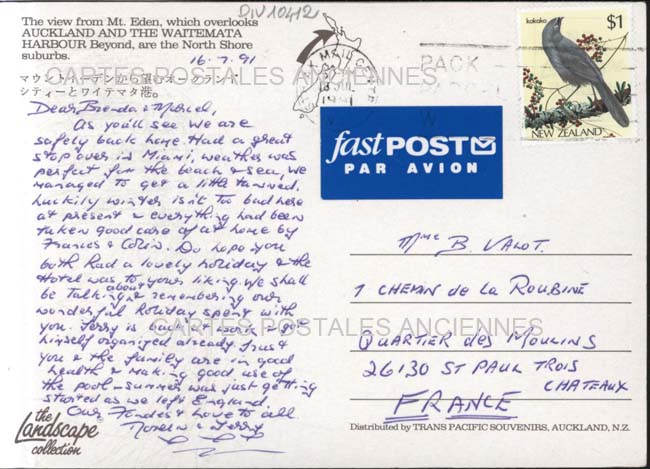 DIV10412
The view from Mt. Eden, which overlooks
AUCKLAND AND THE WAITEMATA
HARBOUR Beyond, are the North Shore
suburbs.
16.7.91
マウントイーデンから望むオークランド
シティーとワイテマタ港。
Dear Brenda &
As you'll see we are
safely back home. Had a great
stop over in Miami, weather was
perfect for the beach & sea, we
managed to get a little tanned.
Luckily winter isn't too bad here
at present & everything had been
taken good care of at home by
Francis & Colin. Do hope you
both had a lovely holiday & the
Hotel was to your liking. We shall
be talking about & remembering our
wonderful holiday spent with
you. Terry is back at work & got
himself organized already. Trust
you & the family are in good
health & making good use of
the pool - summer was just getting
started as we left England.
Our Fondest Love to all
Noreen & Terry
the
Landscape
collection
kokako
$1
NEW ZEALAND
MAIL CENTRE
PACK
fastPOST
PAR AVION
Mme B. VALOT.
1 CHEMIN de LA ROUBINE
QUARTIER des MOULINS
26130 ST PAUL TROIS
CHATEAUX
FRANCE
Distributed by TRANS PACIFIC SOUVENIRS, AUCKLAND, N.Z.
CARTES POSTALES ANCIENNES
CARTES POSTALES ANCIENNES